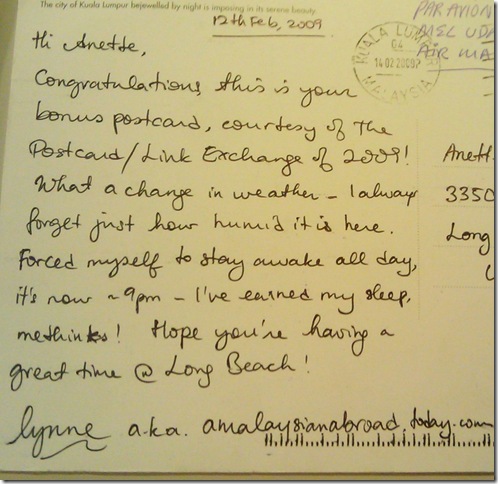 The city of Kuala Lumpur bejewelled by night is imposing in its serene beauty.
12th Feb, 2009
PAR AVION
AIR MA
KUALA LUMPUR
G4
14 02 2009
MALAYSIA
Hi Anette,
Congratulations, this is your
bonus postcard, courtesy of the
Postcard/Link Exchange of 2009!
What a change in weather – I always
forget just how humid it is here.
Forced myself to stay awake all day,
it's now ~9pm – I've earned my sleep,
methinks! Hope you're having a
great time @ Long Beach!
lynne a.k.a. amalaysianabroad.today.com
Anett
3350
Long